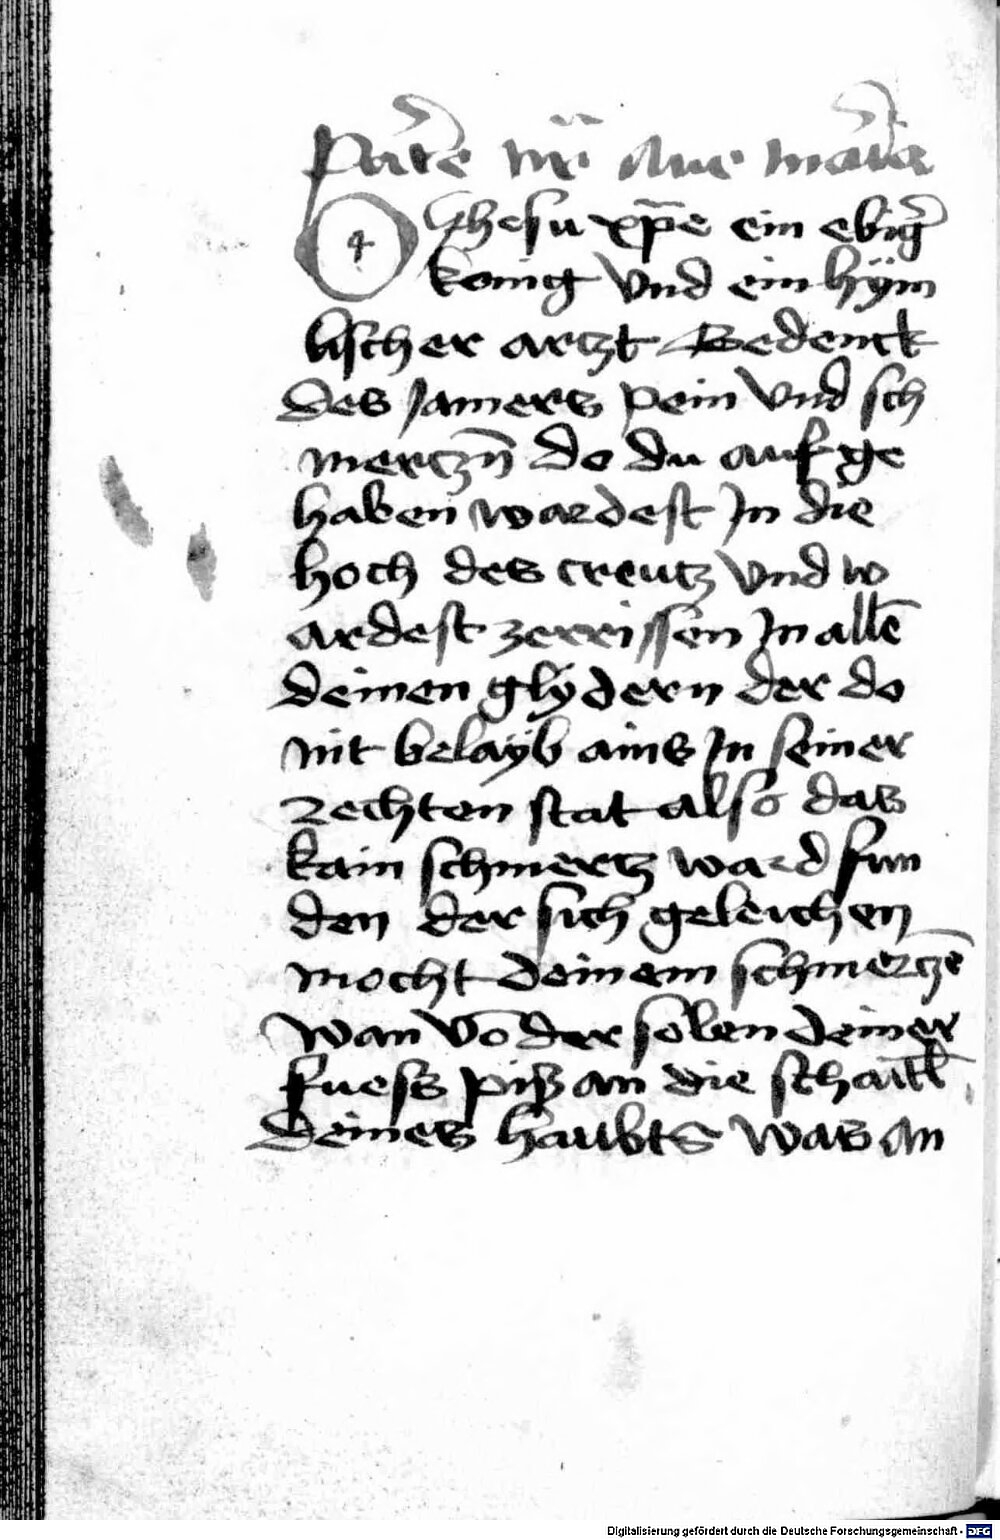 Pater nr̄ Aue maria
O Jhesu xp̄e ein ebiger
konig vnd ein hÿm
lischer artzt Bedenck
des Jamers pein vnd sch
mertzn̄ do du auf ge
haben wardest Jn die
hoch des creutz vnd w
ardest zerrissen Jn allē
deinen glÿdern der do
nit belaÿb ains Jn seiner
rechten stat also das
kain schmertz ward fun
den der sich geleichen
mocht deinem schmertzē
wan vō der solen deiner
fuess piß an die schaitl
deines haubts was an
Digitalisierung gefördert durch die Deutsche Forschungsgemeinschaft - DFG